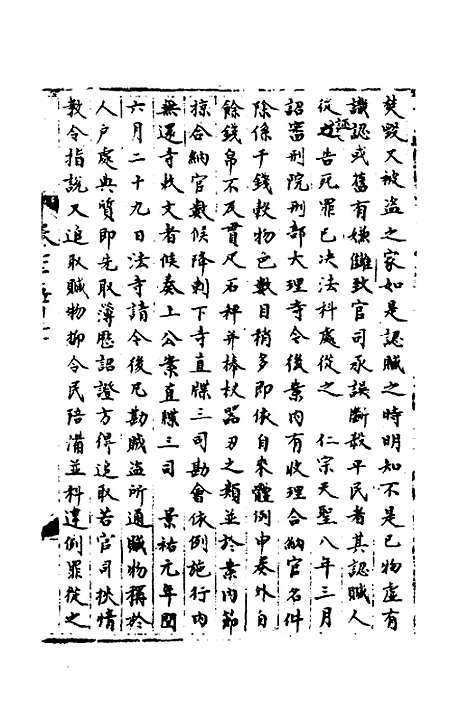 焚毀又被盜之家如是認贓之時明知不是已物虛有
識認或舊有嫌讎致官司承誤斷殺平民者其認贓人
從誣告死罪已決法科處從之　仁宗天聖八年三月
詔審刑院刑部大理寺今後案內有收理合納官名件
除係干錢穀物色數目稍多即依自來體例申奏外自
餘錢帛不及貫尺石秤并捧杖器刃之類並於案內節
掠合納官數候降剌下寺直牒三司勘會依例施行內
無運寺敕文者候奏上公案直牒三司　景祐元年閏
六月二十九日法寺請今後凡勘賊盜所通贓物稱於
人戶處典質即先取簿曆詔證方得追取若官司挾情
教令指說又追取贓物抑令民陪備並科違例罪從之